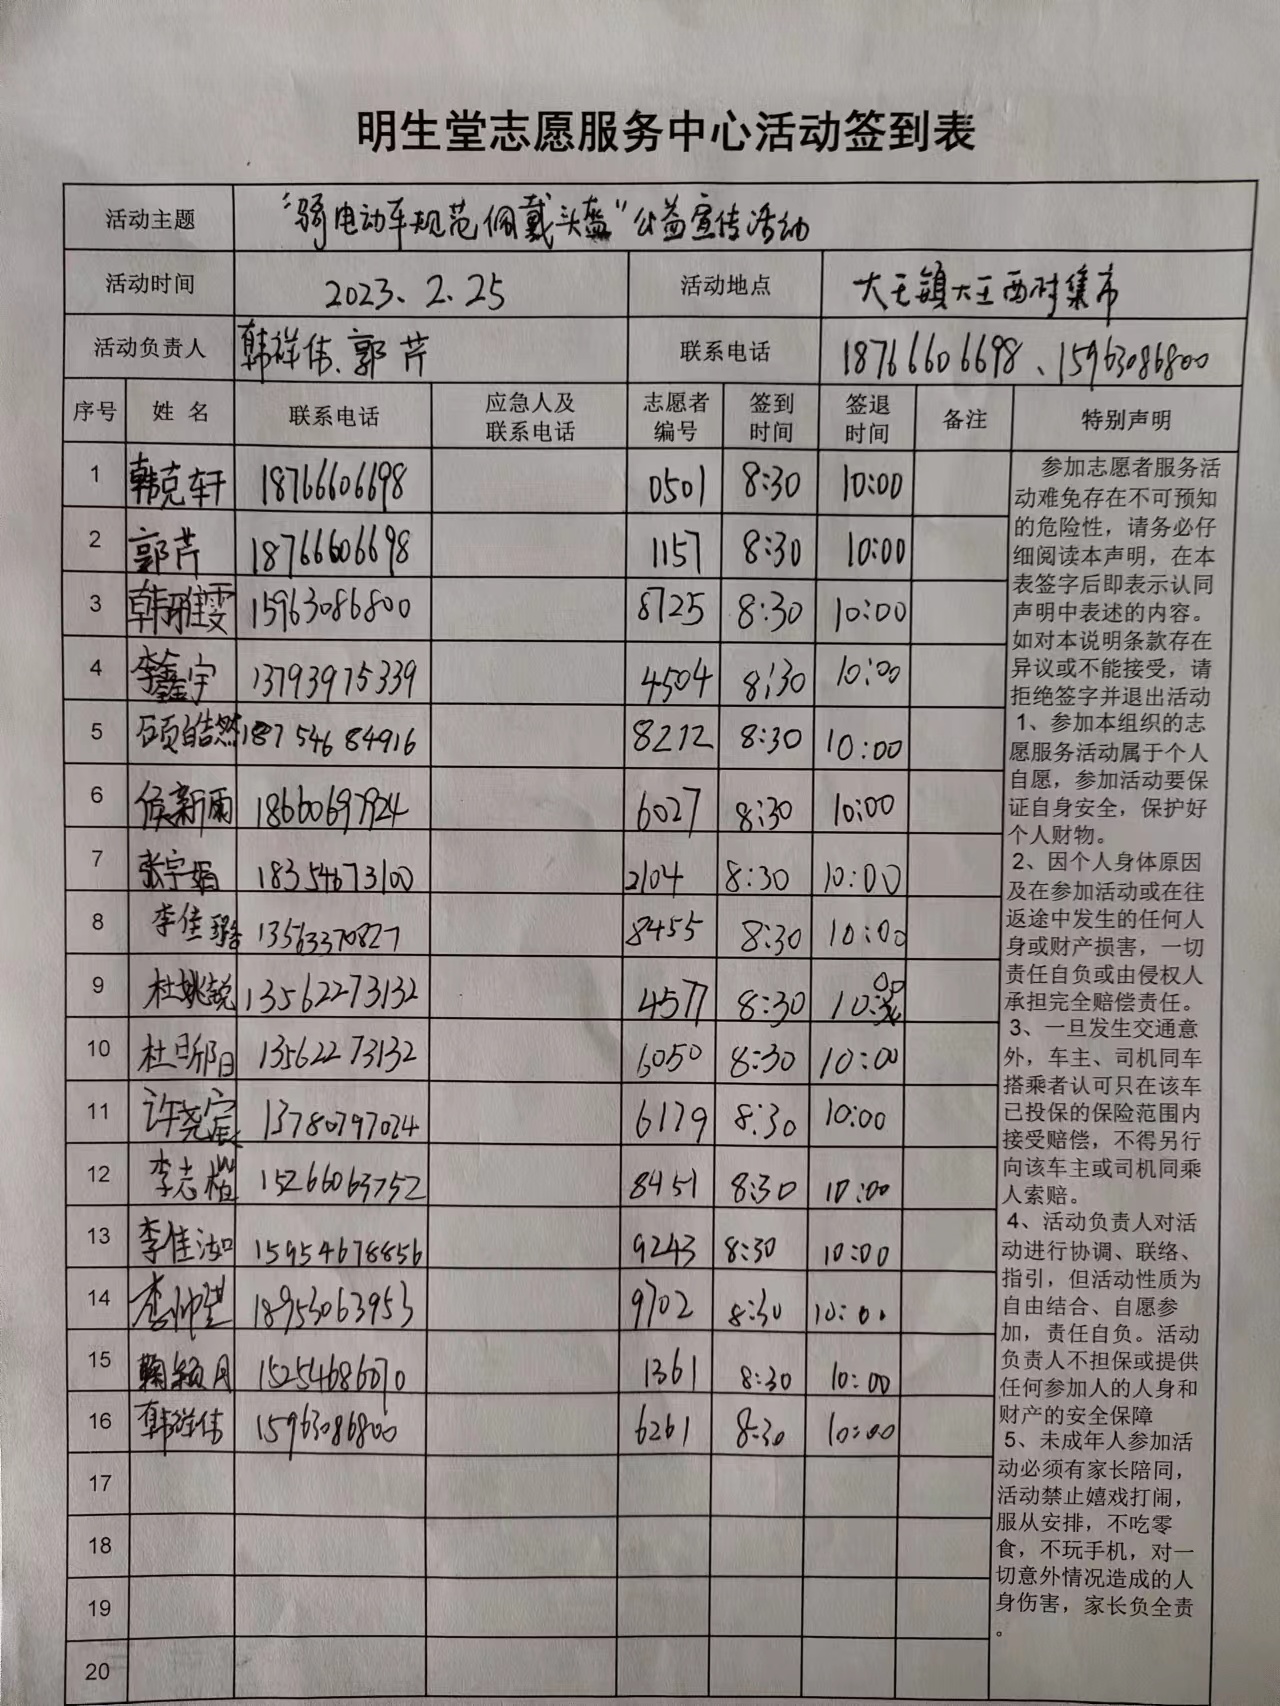 明生堂志愿服务中心活动签到表
活动主题 “骑电动车规范佩戴头盔”公益宣传活动
活动时间 2023、2.25 活动地点 大王镇大王西村集市
活动负责人 韩祥伟、郭芹 联系电话 18766606698、15963086800
序号 姓名 联系电话 应急人及联系电话 志愿者编号 签到时间 签退时间 备注 特别声明
1 韩克轩 18766606698 0501 8:30 10:00
2 郭芹 18766606698 1157 8:30 10:00
3 韩雅雯 15963086800 8725 8:30 10:00
4 李鑫宇 13793975339 4504 8:30 10:00
5 颐皓然 18754684916 8212 8:30 10:00
6 侯新雨 18660697924 6027 8:30 10:00
7 张宇娟 18354673100 2104 8:30 10:00
8 李佳璐 13563370827 8455 8:30 10:00
9 杜姚靓 13562273132 4577 8:30 10:00
10 杜 13562273132 6050 8:30 10:00
11 许尧宸 13780797024 6179 8:30 10:00
12 李志楷 15266063752 8451 8:30 10:00
13 李佳 15954678856 9243 8:30 10:00
14 18953063953 9702 8:30 10:00
15 鞠颖月 15254686070 1361 8:30 10:00
16 韩祥伟 15963086800 6261 8:30 10:00
17
18
19
20
参加志愿者服务活
动难免存在不可预知
的危险性，请务必仔
细阅读本声明，在本
表签字后即表示认同
声明中表述的内容。
如对本说明条款存在
异议或不能接受，请
拒绝签字并退出活动
1、参加本组织的志
愿服务活动属于个人
自愿，参加活动要保
证自身安全，保护好
个人财物。
2、因个人身体原因
及在参加活动或在往
返途中发生的任何人
身或财产损害，一切
责任自负或由侵权人
承担完全赔偿责任。
3、一旦发生交通意
外，车主、司机同车
搭乘者认可只在该车
已投保的保险范围内
接受赔偿，不得另行
向该车主或司机同乘
人索赔。
4、活动负责人对活
动进行协调、联络、
指引，但活动性质为
自由结合、自愿参
加，责任自负。活动
负责人不担保或提供
任何参加人的人身和
财产的安全保障
5、未成年人参加活
动必须有家长陪同，
活动禁止嬉戏打闹，
服从安排，不吃零
食，不玩手机，对一
切意外情况造成的人
身伤害，家长负全责
。